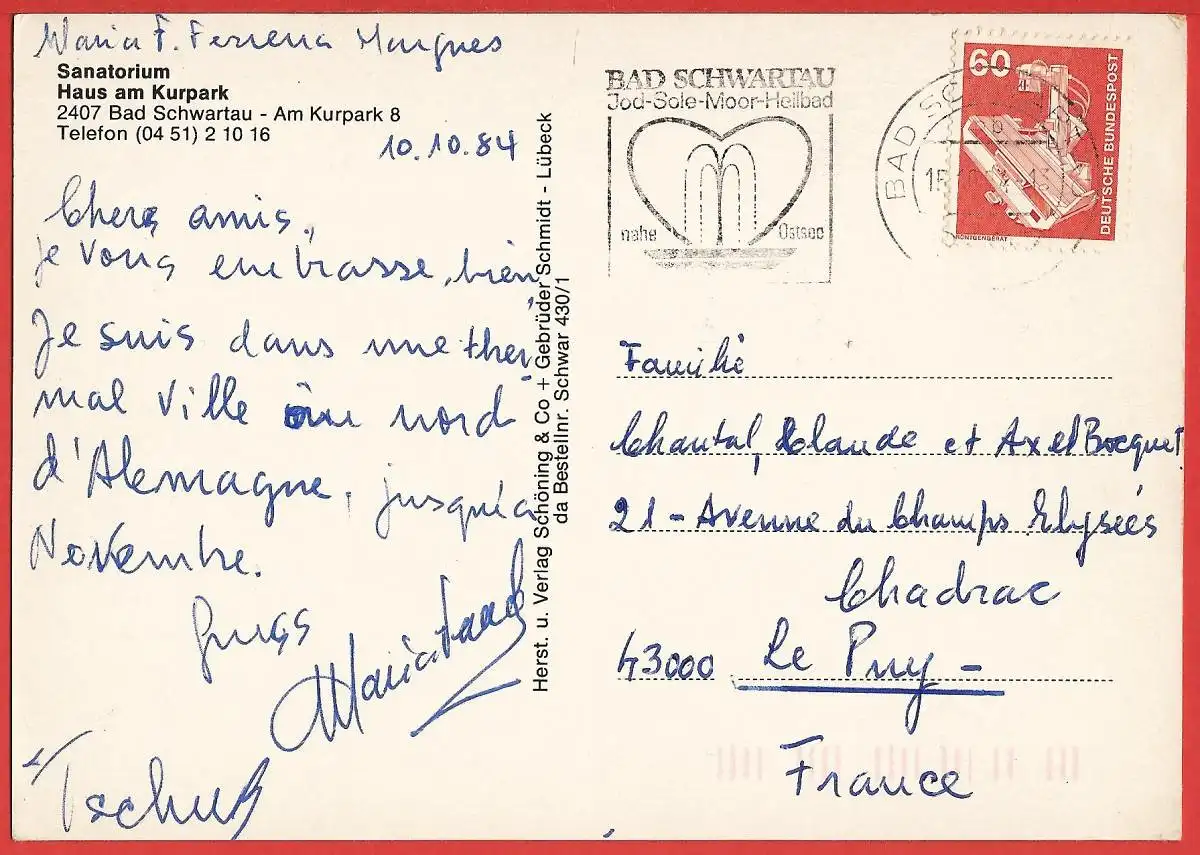 Maria F. Ferreira Marques
Sanatorium
Haus am Kurpark
2407 Bad Schwartau - Am Kurpark 8
Telefon (04 51) 2 10 16
10.10.84
Chers amis.,
je vous embrasse, bien
Je suis dans une ther
mal ville au nord
d'Alemagne, jusqu'à
Novembre.
Tschuß
Herst. u. Verlag Schöning & Co + Gebrüder Schmidt - Lübeck
da Bestellnr. Schwar 430/1
BAD SCHWARTAU
Jod-Sole-Moor-Heilbad
nahe Ostsee
BAD
60
DEUTSCHE BUNDESPOST
RÖNTGENGERÄT
Familie
Chantal, Claude et Axel Bocquet
21 - Avenue du Champs Elysées
Chadrac
43000 Le Puy -
France